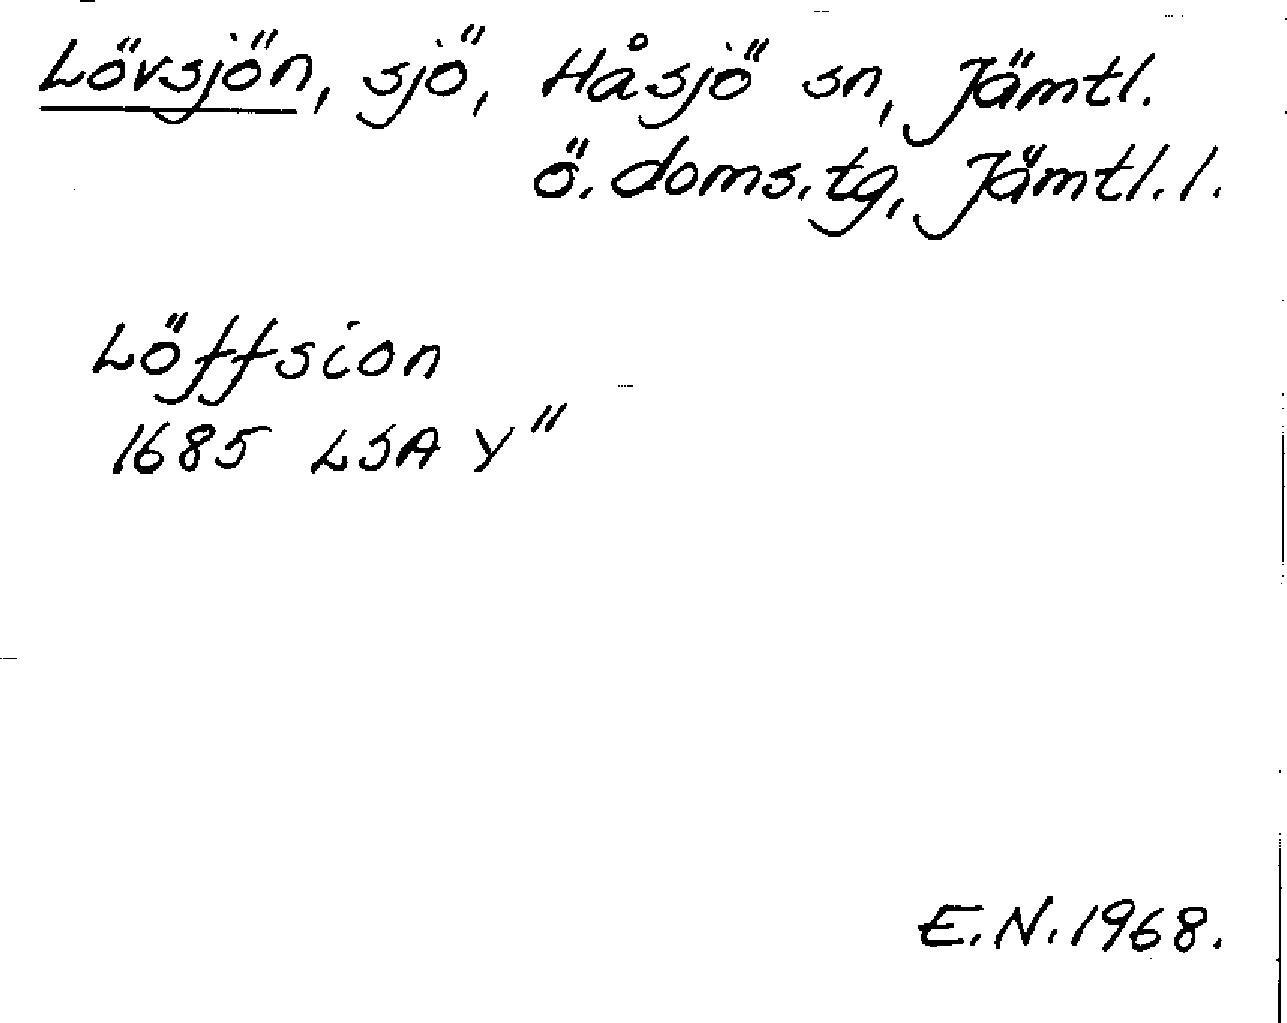 Lövsjön, sjö, Håsjö sn, Jämtl.
ö. doms.tg, Jämtl. l.
Löffsion
1685 LSA Y"
E.N. 1968.